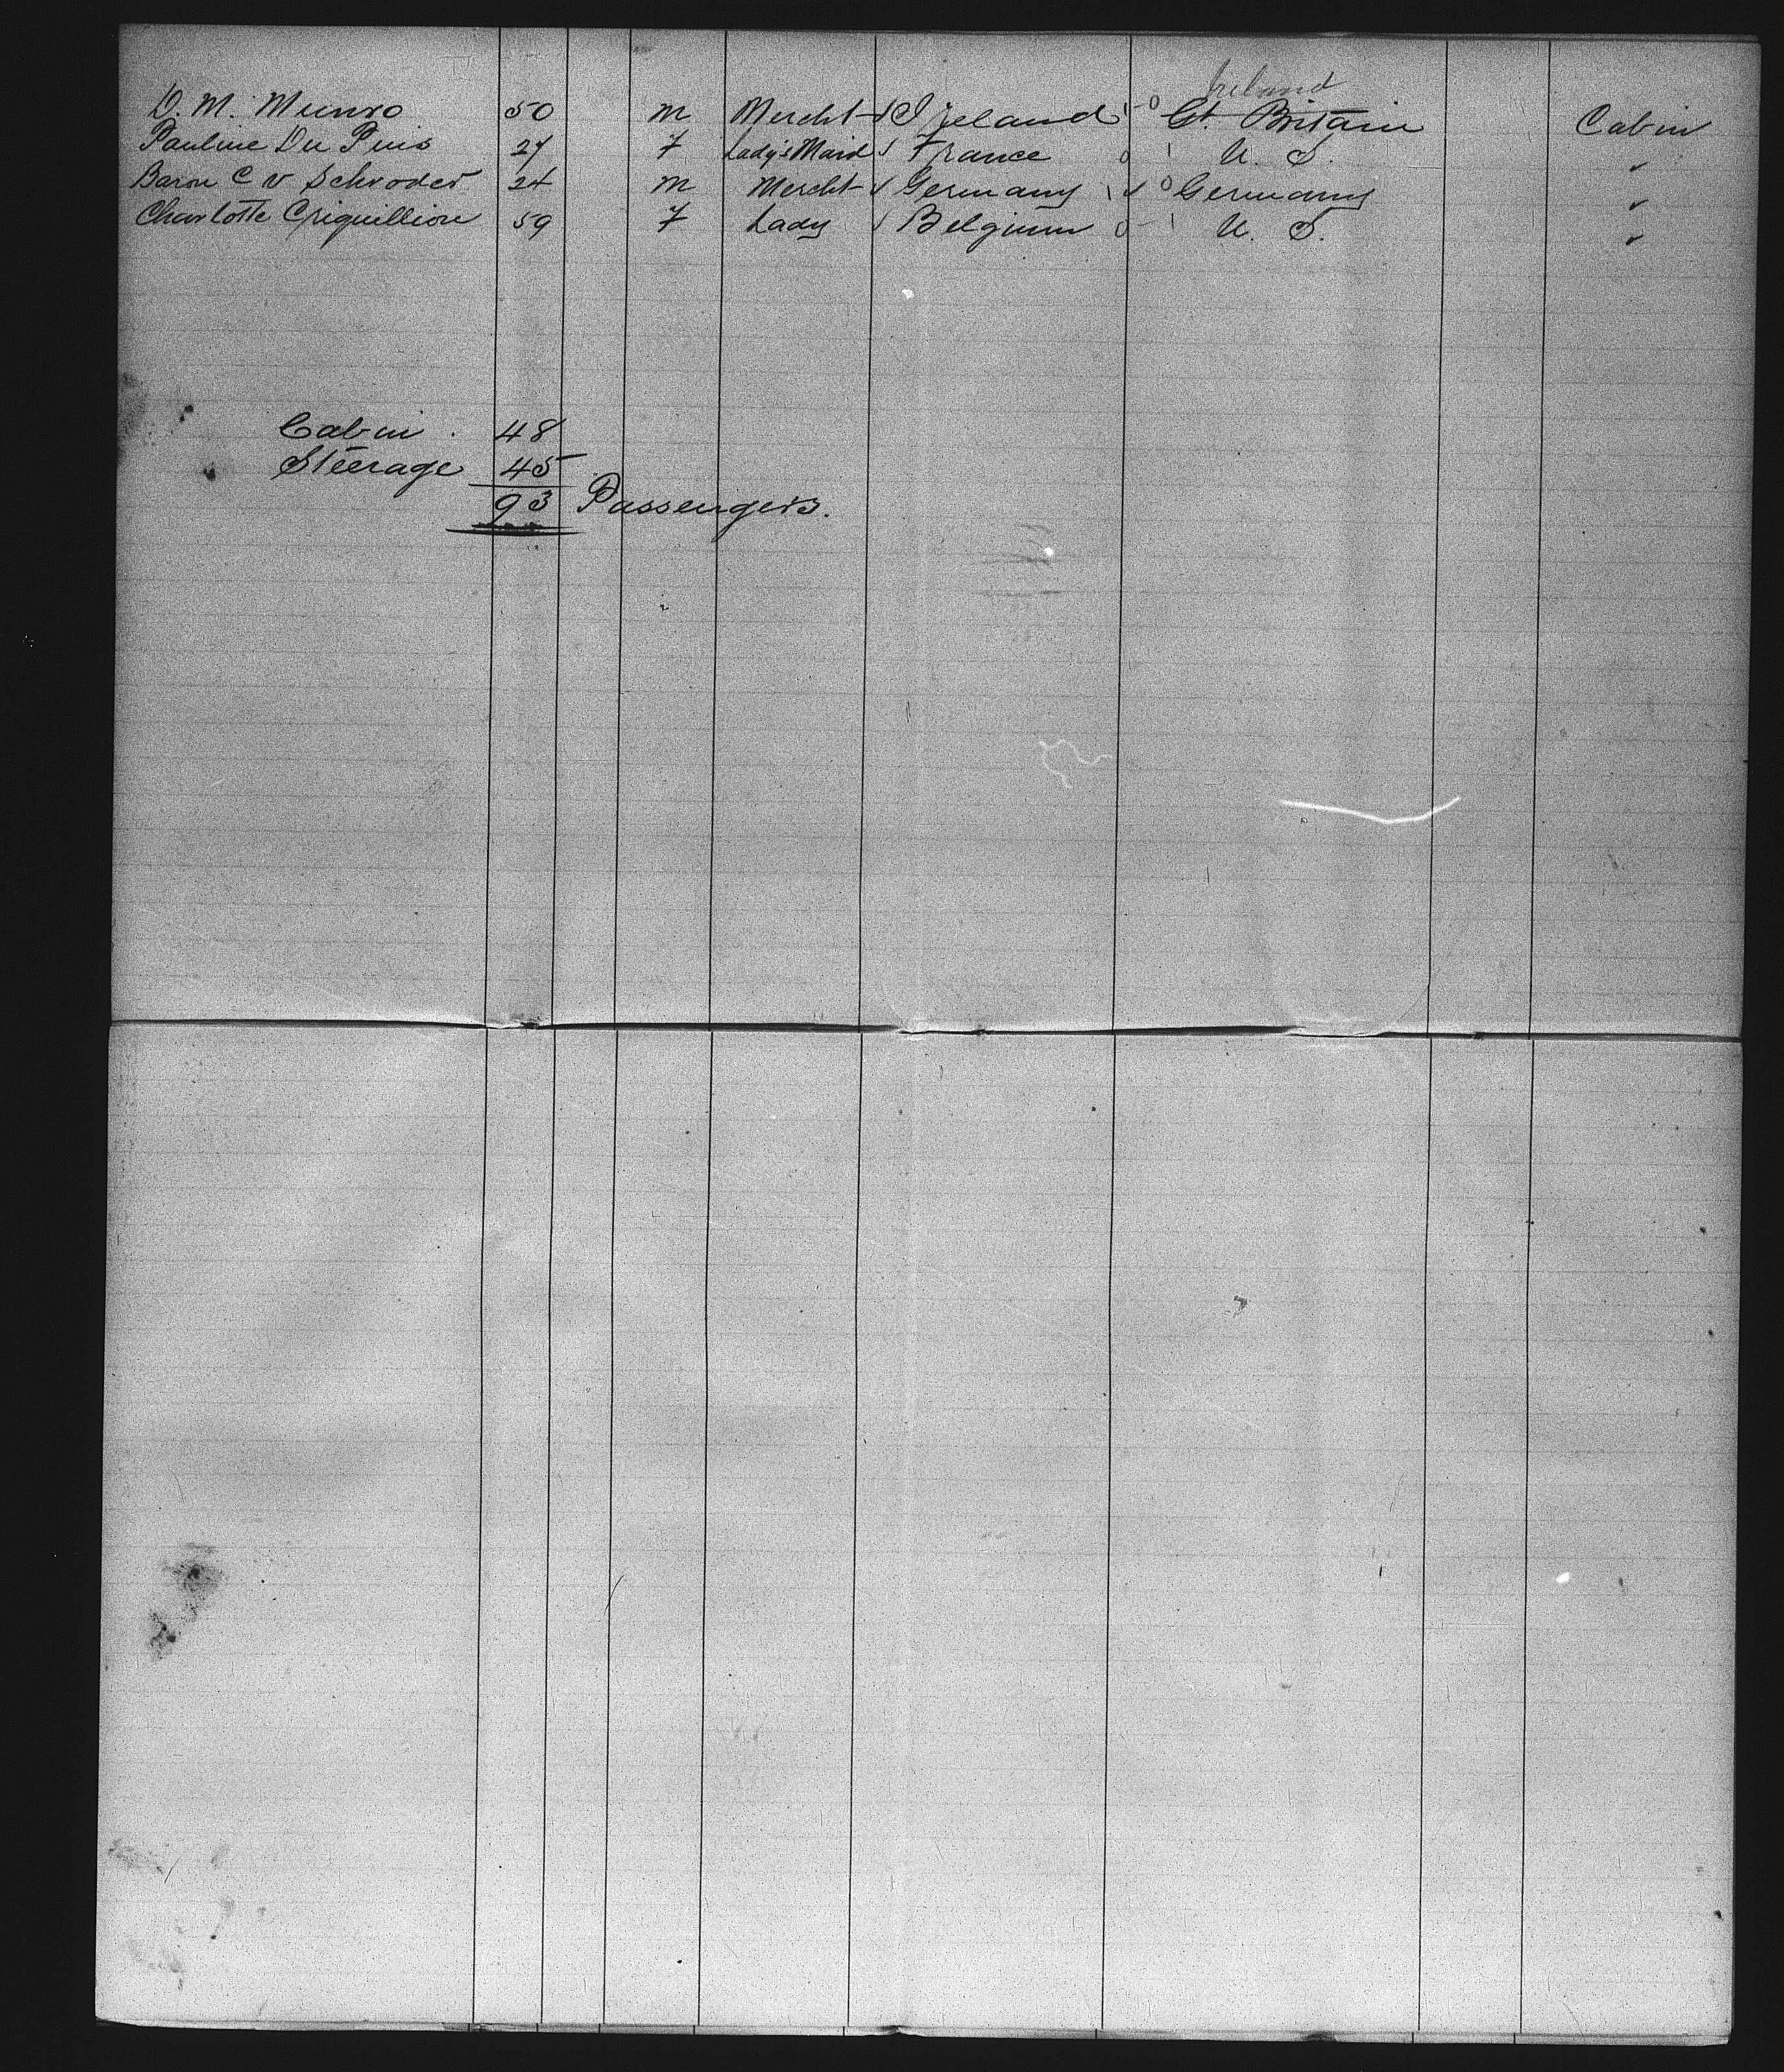 Ireland
D. M. Munro 50 m Mercht Ireland Gt. Britain Cabin
Pauline Du Puis 27 F Lady's Maid France U. S. "
Baron C v Schroder 24 m Mercht Germany Germany "
Charlotte Criquillion 59 F Lady Belgium U. S. "
Cabin 48
Steerage 45
93 Passengers.